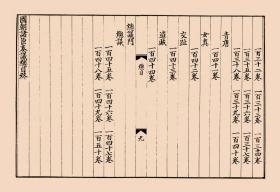 一百三十二卷 一百三十三卷 一百三十四卷
一百三十五卷 一百三十六卷 一百三十七卷
一百三十八卷 一百三十九卷 一百四十卷
青唐
一百四十一卷
女真
一百四十二卷
交趾
一百四十三卷
盜賊
一百四十四卷
總目 九
總議門
總議
一百四十五卷 一百四十六卷 一百四十七卷
一百四十八卷 一百四十九卷 一百五十卷
國朝諸臣奏議總目錄